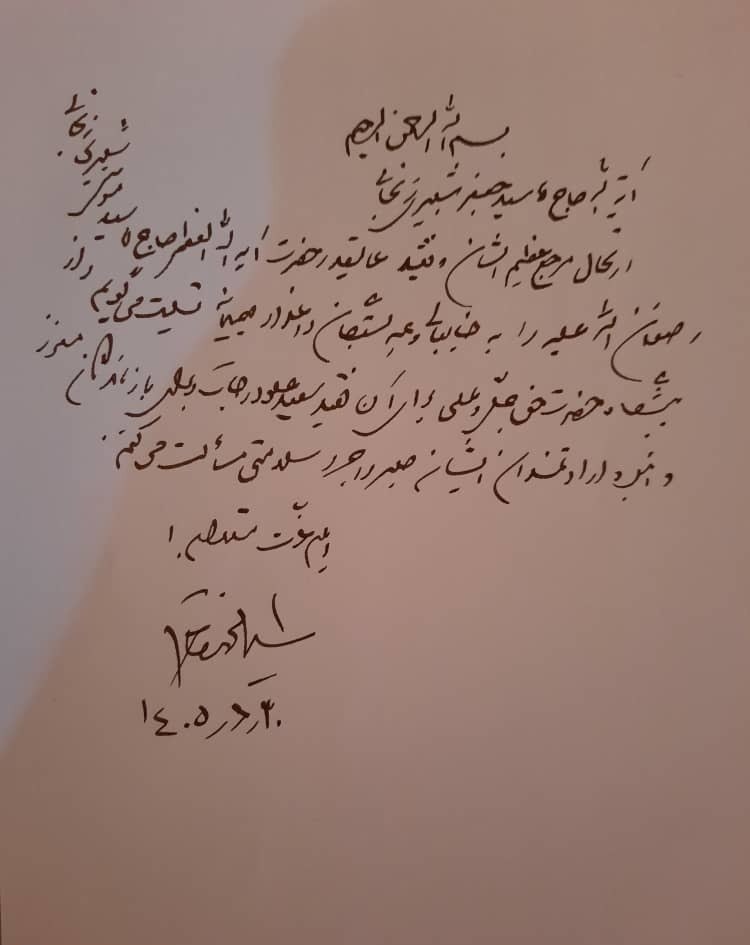 بسم الله الرحمن الرحیم
آیة الله حاج آقا سید جعفر شبیری زنجانی
ارتحال مرجع عظیم الشان و فقید عالیقدر حضرت آیة الله العظمی حاج آقا
سید
موسی
شبیری
زنجانی
رضوان الله علیه را به جنابعالی و همه بستگان داغدار صمیمانه تسلیت می گویم و از
پیشگاه حضرت حق جلّ و علی برای آن فقید سعید علو درجات و برای بازماندگان معزز
و انبوه ارادتمندان ایشان صبر و اجر و سلامتی مسألت می کنم.
ایام عزت مستدام.
۳۰ر۳ر۱۴۰۵